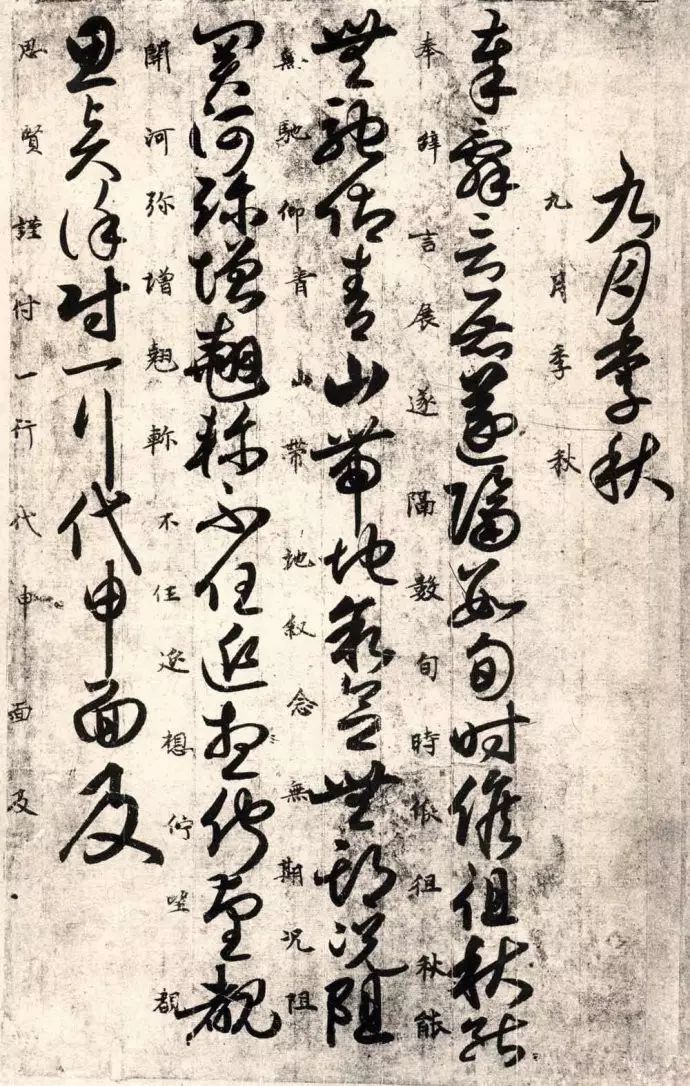 九月季秋
九月季秋
奉辭言展遂隔數旬時候徂秋能
奉辭言展遂隔數旬時候徂秋能
無馳仰青山帶地叙念無期况阻
無馳仰青山帶地叙念無期况阻
關河弥增翹軫不任想佇望覩
開河弥增翹軫不任想佇望覩
思賢謹付一行代申面及
思賢謹付一行代申面及